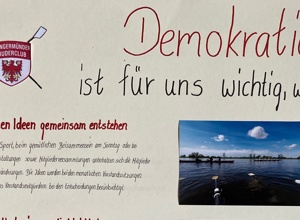 Demokrati
ist für uns wichtig, w
NGERMÜNDE
RUDERCLUB
en Ideen gemeinsam entstehen
Sport, beim gemütlichen Beisammensein am Sonntag oder bei
staltungen sowie Mitgliederversammlungen unterhalten sich die Mitglieder
änderungen. Die Ideen werden bei den monatlichen Vorstandssitzungen
es Vorstandsmitgliedern bei den Entscheidungen berücksichtigt.